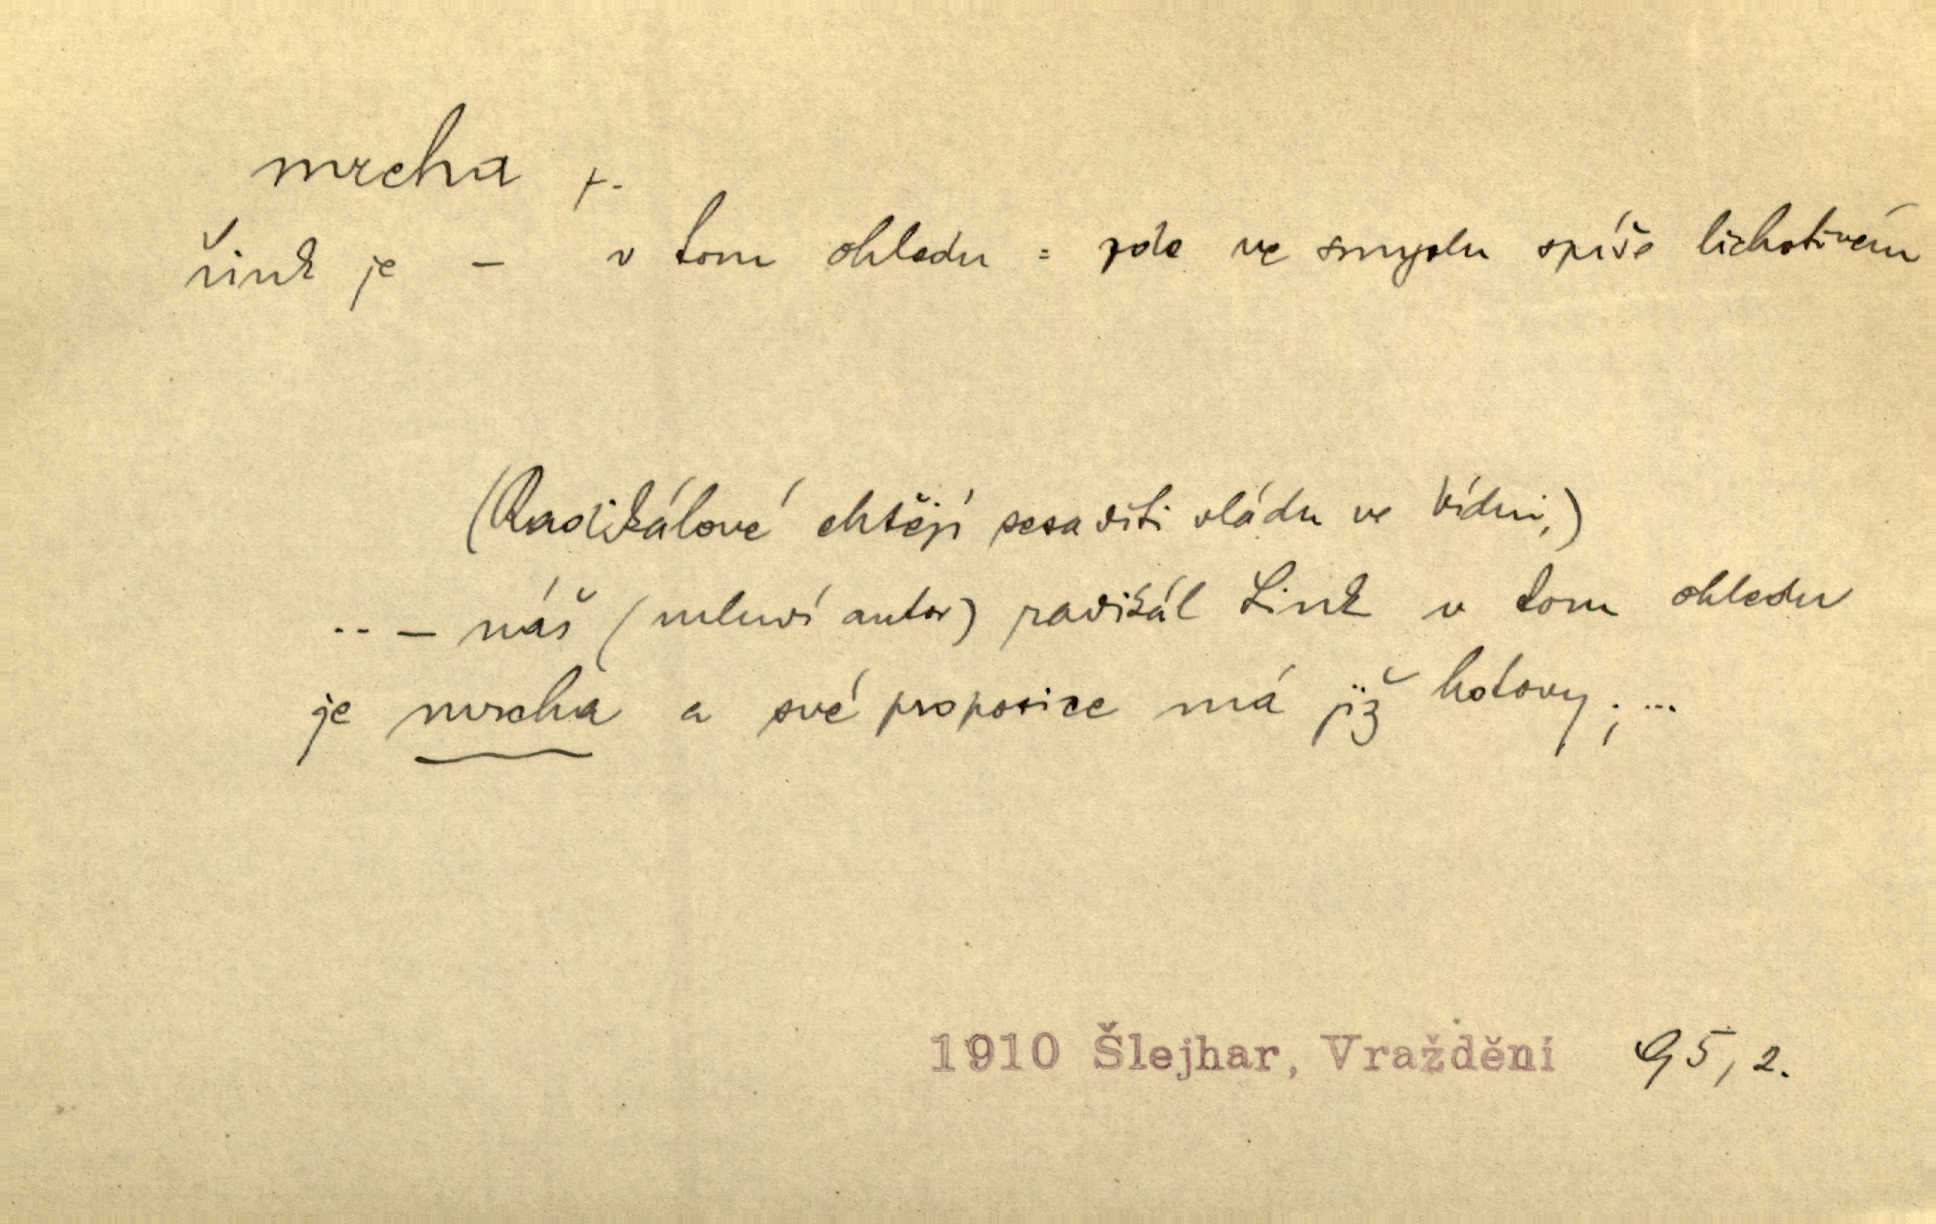 mrcha f.
Šink je – v tom ohledu = zde ve smyslu spíše lichotivém
(Radikálové chtějí sesaditi vládu ve Vídni,)
.. – náš (mluví autor) radikál Šink v tom ohledu
je mrcha a své proposice má již hotovy; ...
1910 Šlejhar, Vraždění 95, 2.